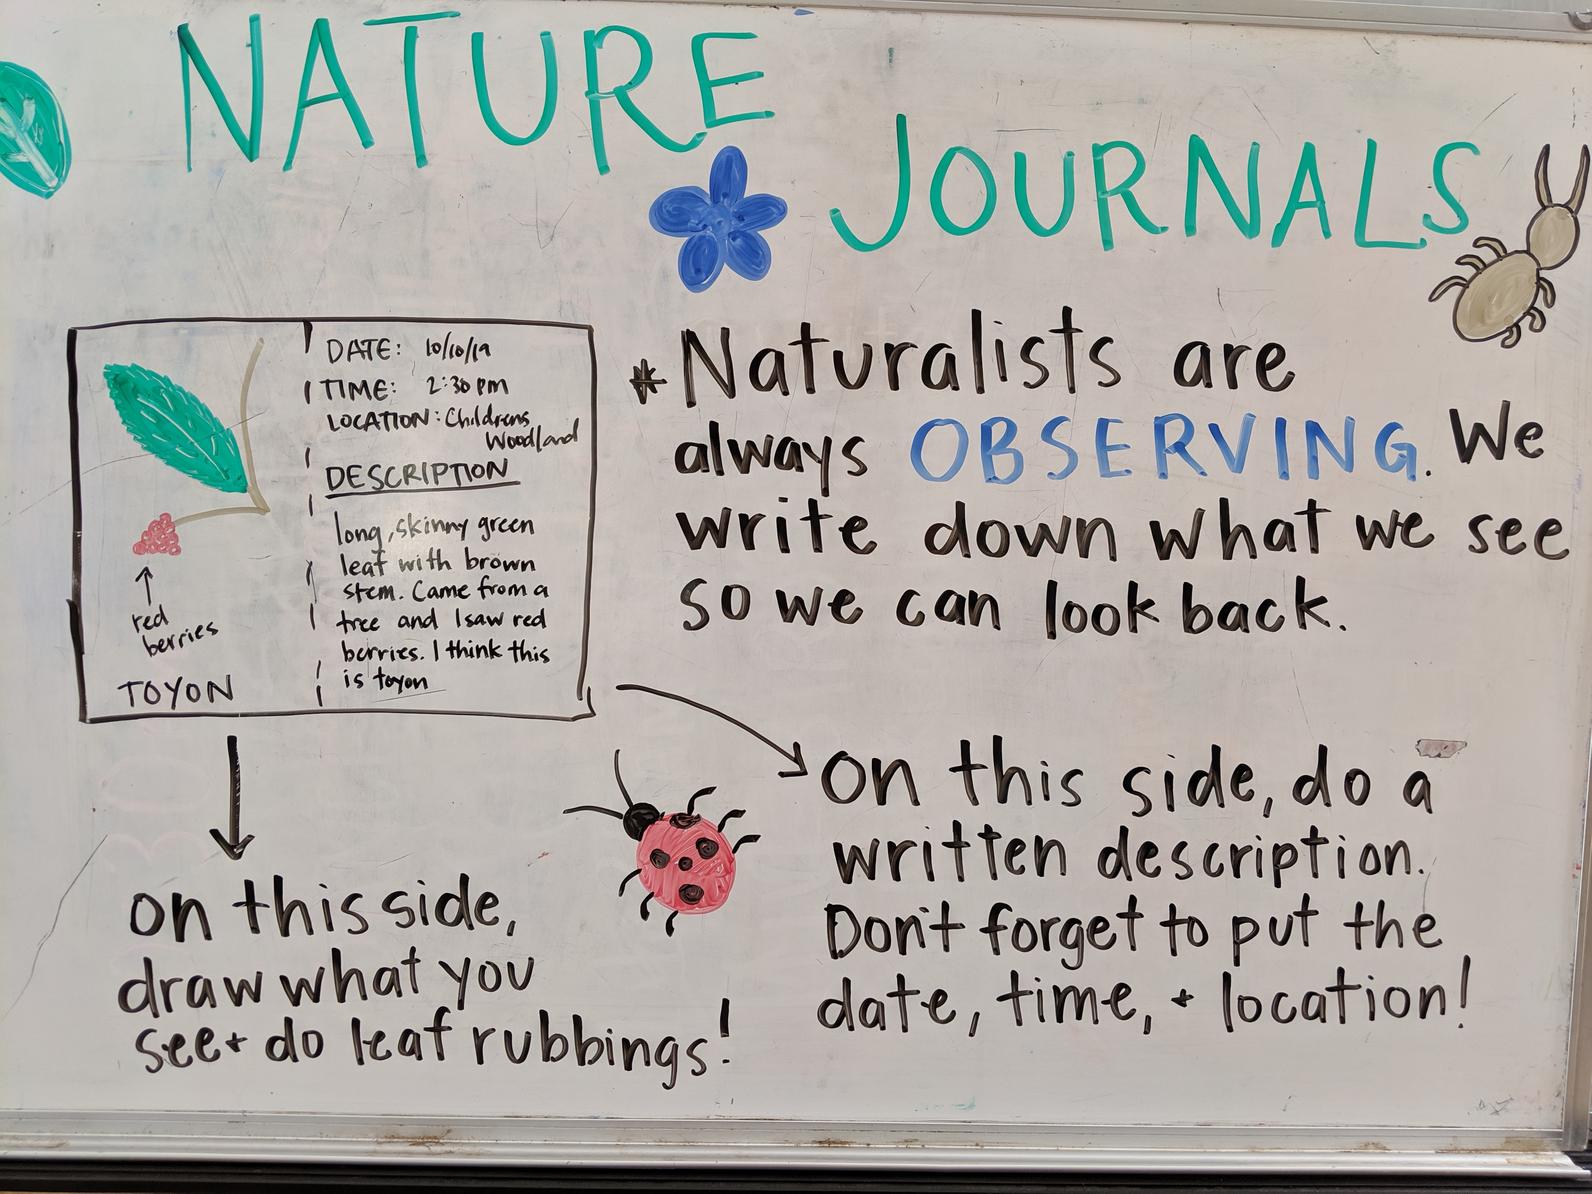 NATURE
JOURNALS
DATE: 10/10/19
TIME: 2:30 pm
LOCATION: Childrens
Woodland
DESCRIPTION
long, skinny green
leaf with brown
stem. Came from a
tree and I saw red
berries. I think this
is toyon
red
berries
TOYON
* Naturalists are
always OBSERVING. We
write down what we see
so we can look back.
On this side, do a
written description.
Don't forget to put the
date, time, + location!
on this side,
draw what you
see + do leaf rubbings!